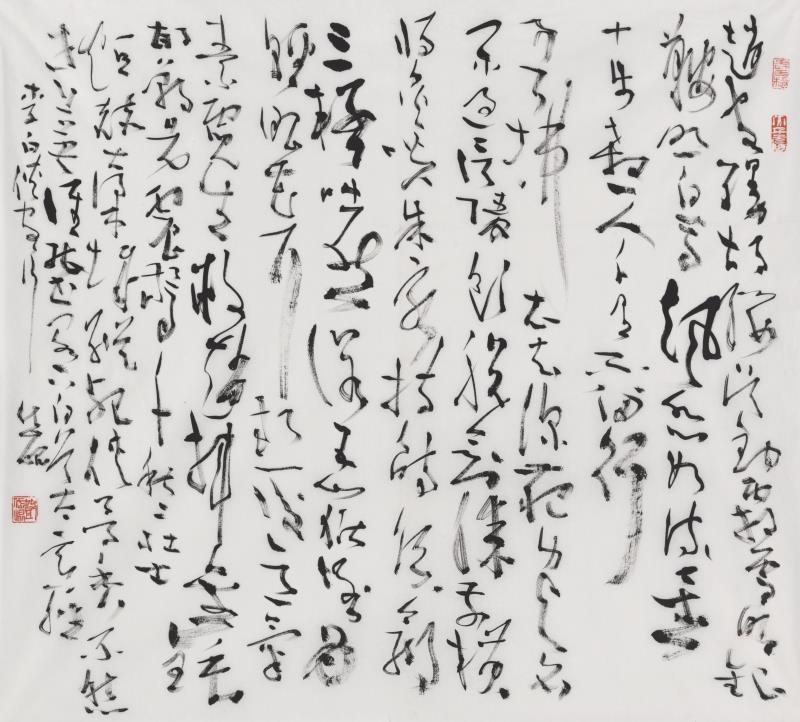 趙客縵胡纓吳鉤霜雪明銀
鞍照白馬颯沓如流星
十步殺一人千里不留行
事了拂衣去深藏身與名
閑過信陵飲脫劍膝前橫
將炙啖朱亥持觴勸侯嬴
三杯吐然諾五嶽倒為
輕眼花耳熱後意氣
素霓生救趙揮金槌
邯鄲先震驚千秋二壯士
烜赫大梁城縱死俠骨香不慚
世上英誰能書閣下白首太玄經
李白俠客行